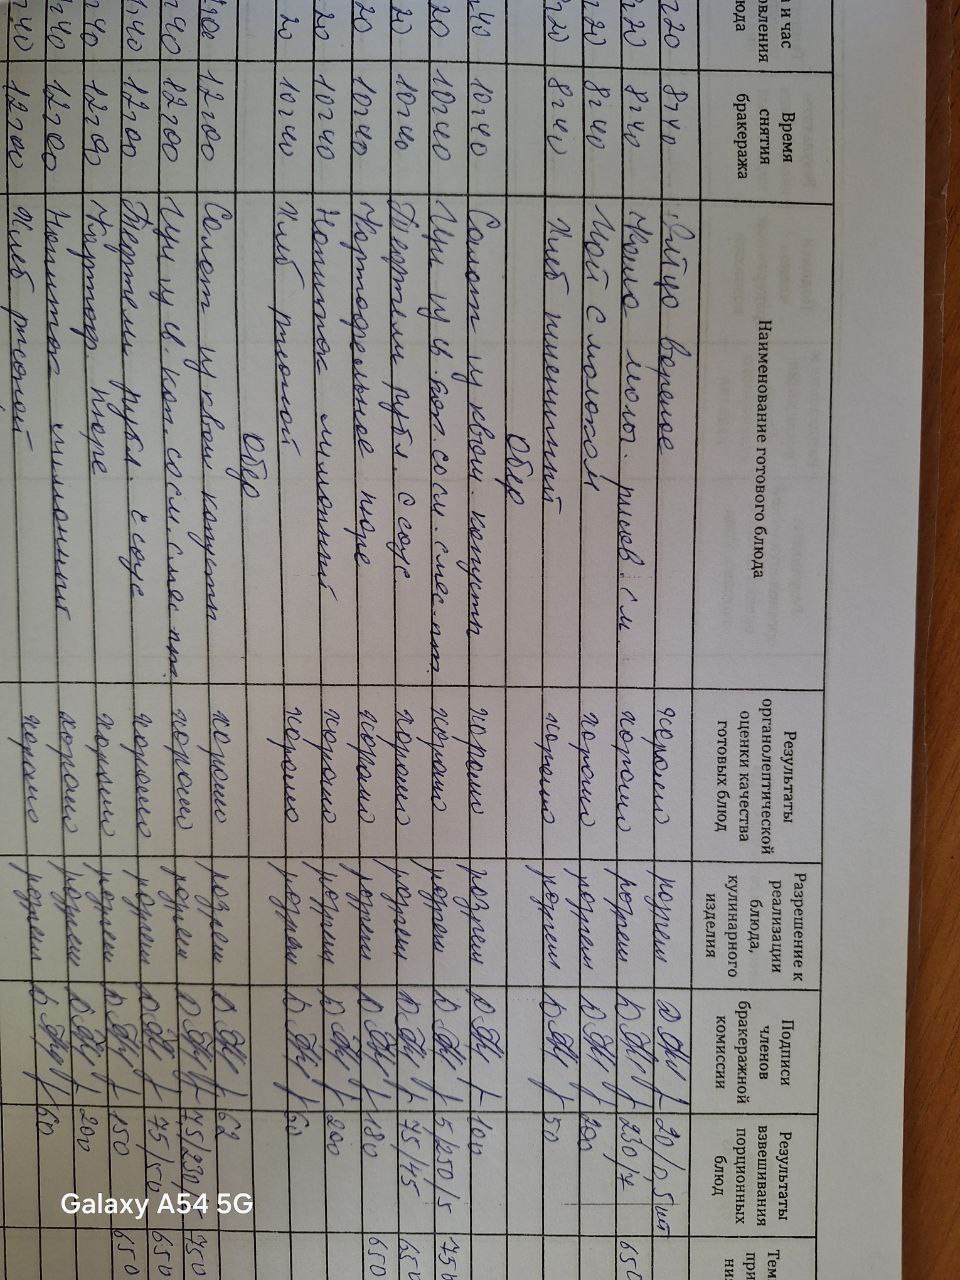 а и час
овления
юда
Время
снятия
бракеража
Наименование готового блюда
Результаты
органолептической
оценки качества
готовых блюд
Разрешение к
реализации
блюда,
кулинарного
изделия
Подписи
членов
бракеражной
комиссии
Результаты
взвешивания
порционных
блюд
Тем
при
ни
20 8ч40 Яйцо вареное хорошо разреш 20/0,5шт
20 8ч40 Каша молоч. рисов см хорошо разреш 230/7 650
20 8ч40 Чай с молоком хорошо разреш 200
20 8ч40 Хлеб пшеничный хорошо разреш 50
Обед
40 10ч40 Салат из кваш. капусты хорошо разреш 100
20 10ч40 Щи из св. кап. со см. смес. хорошо разреш 5/250/5 750
20 10ч40 Тефтели рубл. с соус хорошо разреш 75/45 650
20 10ч40 Картофельное пюре хорошо разреш 180 650
20 10ч40 Напиток лимонный хорошо разреш 200
20 10ч40 Хлеб ржаной хорошо разреш 60
Обед
12ч00 Салат из кваш капусты хорошо разреш 62
40 12ч00 Щи из св. кап. со см. смес хорошо разреш 75/230/5 750
40 12ч00 Тефтели рубл. с соус хорошо разреш 75/50 650
40 12ч00 Картоф пюре хорошо разреш 150 650
40 12ч00 Напиток лимонный хорошо разреш 200
40 12ч00 Хлеб ржаной хорошо разреш 60
Galaxy A54 5G